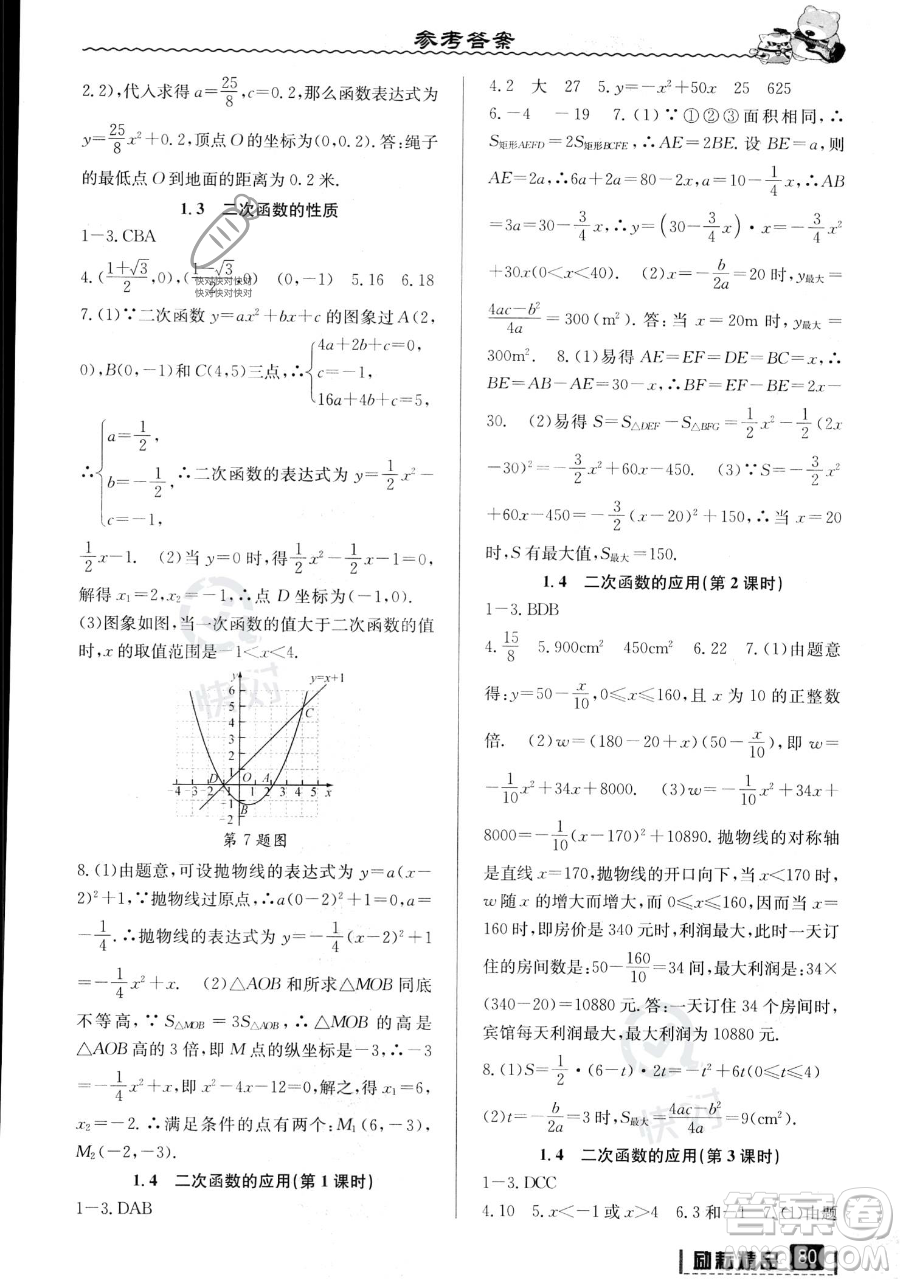 参考答案
2.2),代入求得 a=25/8,c=0.2,那么函数表达式为
y=25/8x²+0.2,顶点 O 的坐标为(0,0.2).答:绳子
的最低点 O 到地面的距离为 0.2 米.
1.3 二次函数的性质
1-3.CBA
4.(1+√3/2,0),(1-√3/2,0) (0,-1) 5.16 6.18
快对快对快对
快对快对快对
7.(1)∵二次函数 y=ax²+bx+c 的图象过 A(2,
0),B(0,-1)和 C(4,5)三点,∴{4a+2b+c=0, c=-1, 16a+4b+c=5,
∴{a=1/2, b=-1/2, c=-1, ∴二次函数的表达式为 y=1/2x²-
1/2x-1. (2)当 y=0 时,得1/2x²-1/2x-1=0,
解得 x₁=2,x₂=-1,∴点 D 坐标为(-1,0).
(3)图象如图,当一次函数的值大于二次函数的值
时,x 的取值范围是-1<x<4.
y y=x+1
6
5 C
4
3
2
1
D O A
-4 -3 -2 -1 1 2 3 4 5 x
-1 B
-2
第 7 题图
8.(1)由题意,可设抛物线的表达式为 y=a(x-
2)²+1,∵抛物线过原点,∴a(0-2)²+1=0,a=
-1/4.∴抛物线的表达式为 y=-1/4(x-2)²+1
=-1/4x²+x. (2)△AOB 和所求△MOB 同底
不等高,∵S△MOB=3S△AOB,∴△MOB 的高是
△AOB 高的 3 倍,即 M 点的纵坐标是-3,∴-3
=-1/4x²+x,即 x²-4x-12=0,解之,得 x₁=6,
x₂=-2,∴满足条件的点有两个:M₁(6,-3),
M₂(-2,-3).
1.4 二次函数的应用(第 1 课时)
1-3.DAB
4.2 大 27 5.y=-x²+50x 25 625
6.-4 -19 7.(1)∵①②③面积相同,∴
S矩形AEFD=2S矩形BCFE,∴AE=2BE.设 BE=a,则
AE=2a,∴6a+2x=80,∴a=10-1/4x,∴AB
=3a=30-3/4x,∴y=(30-3/4x)·x=-3/4x²
+30x(0<x<40). (2)x=-b/2a=20 时,y最大=
4ac-b²/4a=300(m²).答:当 x=20m 时,y最大=
300m². 8.(1)易得 AE=EF=DE=BC=x,∴
BE=AB-AE=30-x,∴BF=EF-BE=2x-
30. (2)易得 S=S△DEF-S△BFG=1/2x²-1/2(2x
-30)²=-3/2x²+60x-450. (3)∵S=-3/2x²
+60x-450=-3/2(x-20)²+150,∴当 x=20
时,S 有最大值,S最大=150.
1.4 二次函数的应用(第 2 课时)
1-3.BDB
4.15/8 5.900cm² 6.22 7.(1)由题意
得:y=50-x/10,0≤x≤160,且 x 为 10 的正整数
倍. (2)w=(180-20+x)(50-x/10),即 w=
-1/10x²+34x+8000. (3)w=-1/10x²+34x+
8000=-1/10(x-170)²+10890.抛物线的对称轴
是直线 x=170,抛物线的开口向下,当 x<170 时,
w 随 x 的增大而增大,而 0≤x≤160,因而当 x=
160 时,即房价是 340 元时,利润最大,此时一天订
住的房间数是:50-160/10=34 间,最大利润是:34×
(340-20)=10880 元.答:一天订住 34 个房间时,
宾馆每天利润最大,最大利润为 10880 元.
8.(1)S=1/2·(6-t)·2t=-t²+6t(0≤t≤4)
(2)t=-b/2a=3 时,S最大=4ac-b²/4a=9(cm²).
1.4 二次函数的应用(第 3 课时)
1-3.DCC
4.10 5.x<-1或 x>4 6.3 和-1 7.(1)由题
励耘精品 80